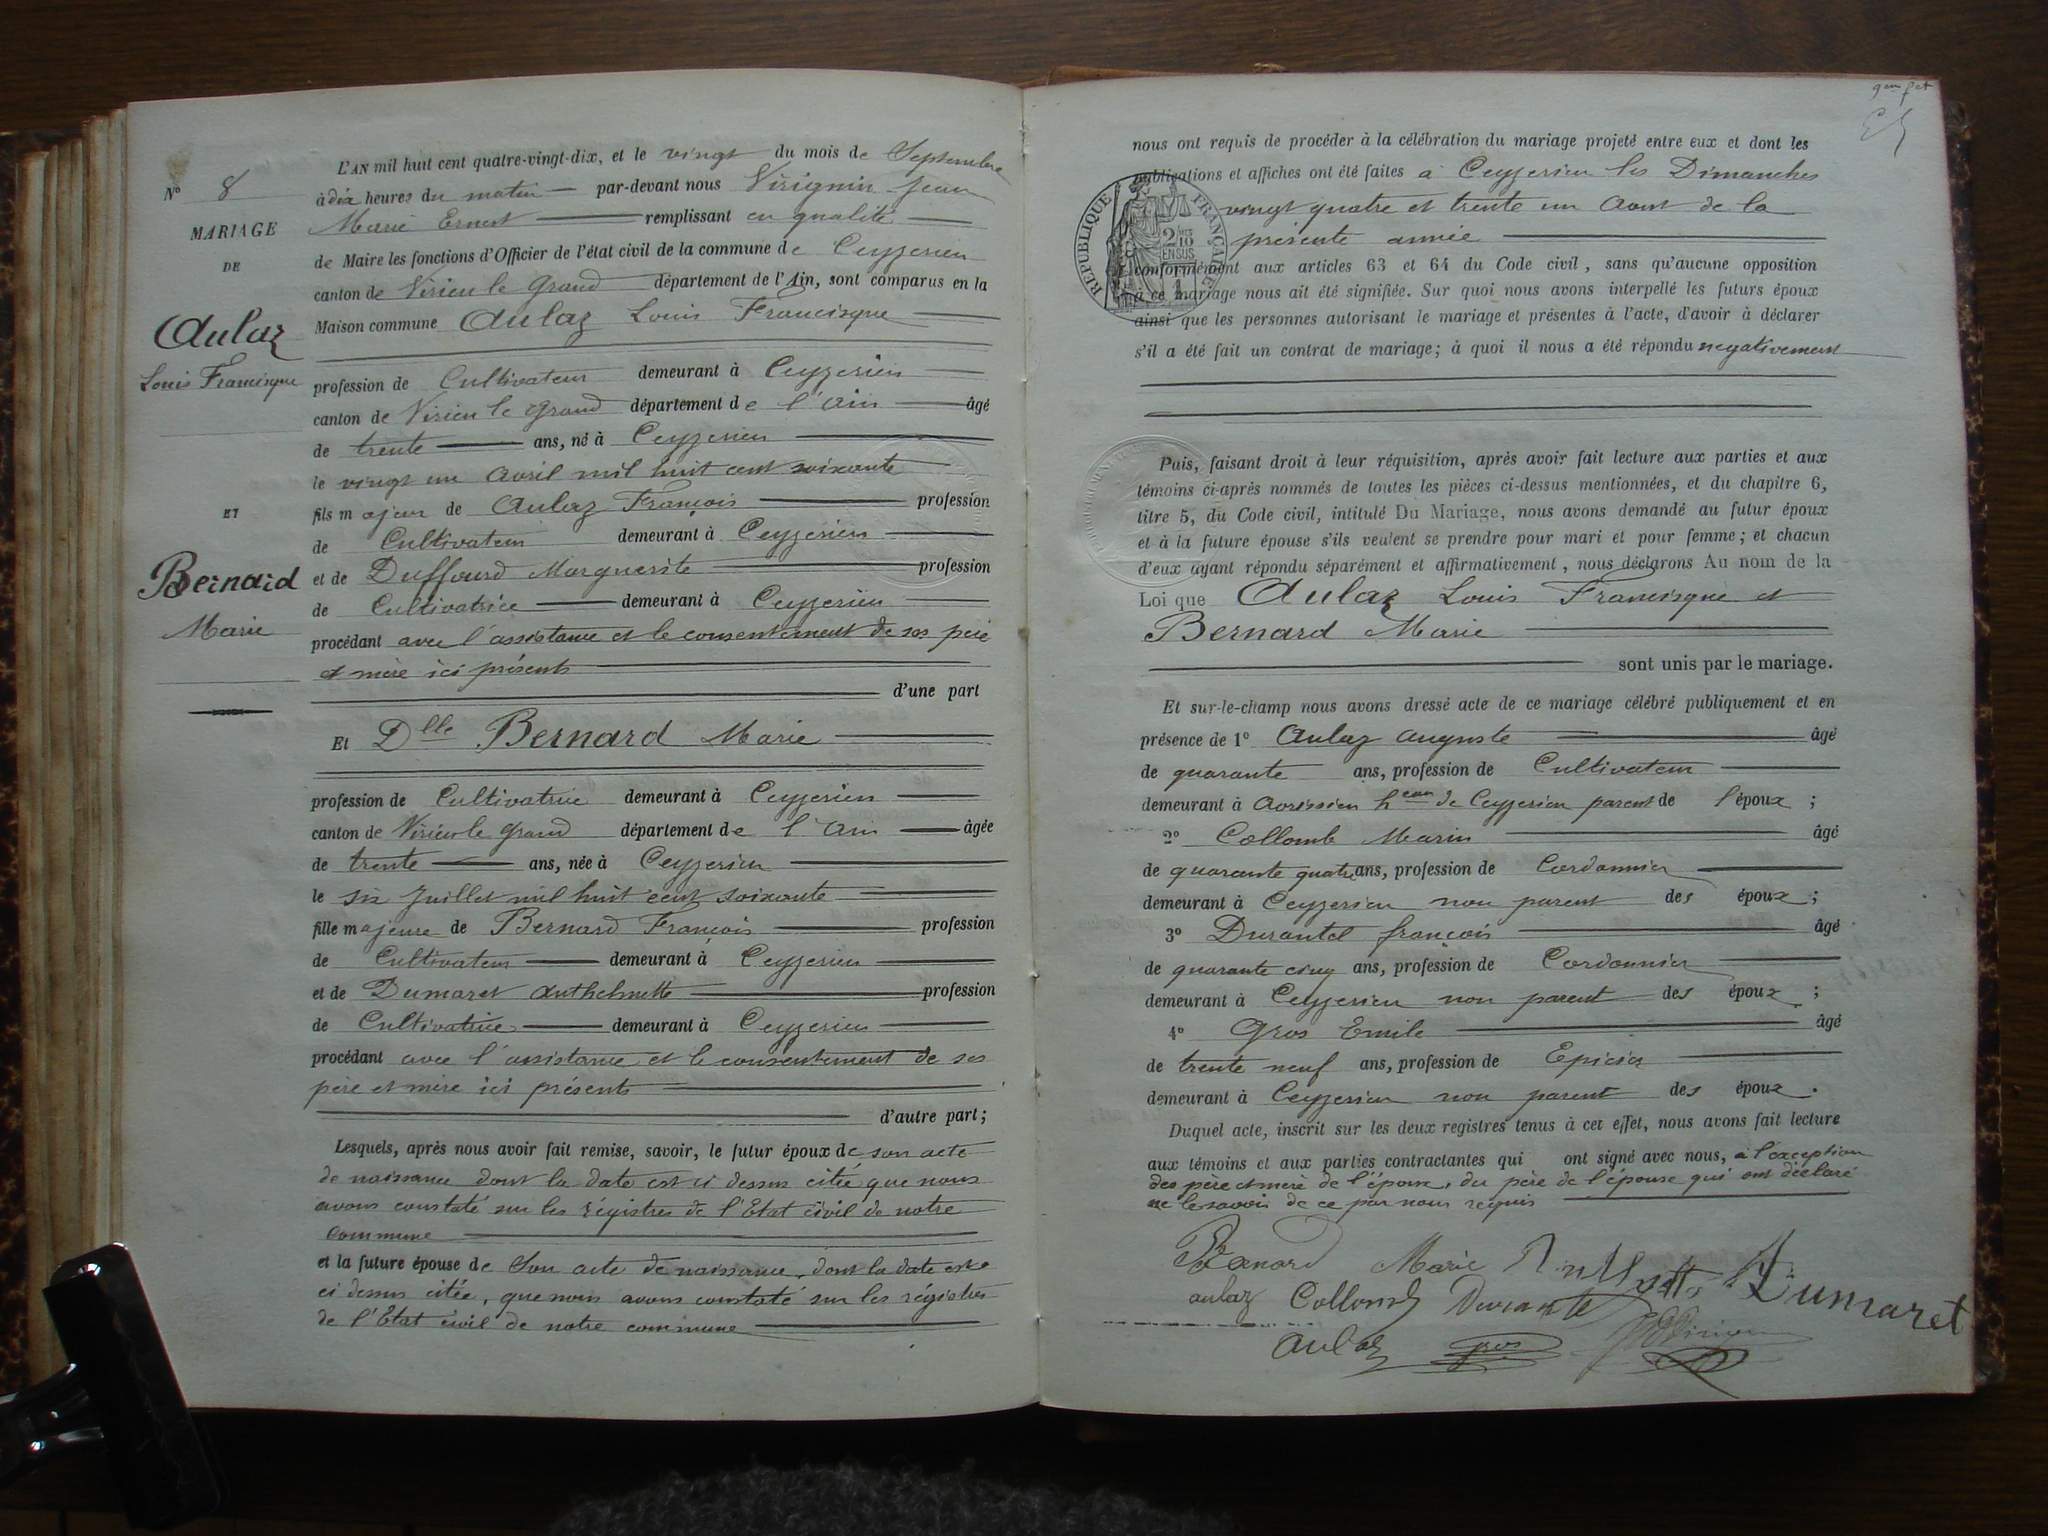 L'AN mil huit cent quatre-vingt-dix, et le vingt du mois de Septembre
N° 8
à dix heures du matin par-devant nous Virignin Jean
MARIAGE
Marie Ernest remplissant en qualité
DE
de Maire les fonctions d'Officier de l'état civil de la commune de Ceyzerieu
canton de Virieu le Grand département de l'Ain, sont comparus en la
Aulaz
Maison commune Aulaz Louis Francisque
Louis Francisque
profession de Cultivateur demeurant à Ceyzerieu
canton de Virieu le Grand département de l'Ain âgé
de trente ans, né à Ceyzerieu
le vingt un avril mil huit cent soixante
ET
fils majeur de Aulaz François profession
de Cultivateur demeurant à Ceyzerieu
Bernard
et de Duffourd Marguerite profession
de Cultivatrice demeurant à Ceyzerieu
Marie
procédant avec l'assistance et le consentement de ses père
et mère ici présents
d'une part
Et Dlle Bernard Marie
profession de Cultivatrice demeurant à Ceyzerieu
canton de Virieu le Grand département de l'Ain âgée
de trente ans, née à Ceyzerieu
le six Juillet mil huit cent soixante
fille majeure de Bernard François profession
de Cultivateur demeurant à Ceyzerieu
et de Dumaret Anthelmette profession
de Cultivatrice demeurant à Ceyzerieu
procédant avec l'assistance et le consentement de ses
père et mère ici présents
d'autre part;
Lesquels, après nous avoir fait remise, savoir, le futur époux de son acte
de naissance dont la date est ci dessus citée que nous
avons constaté sur les régistres de l'Etat civil de notre
commune
et la future épouse de Son acte de naissance, dont la date est
ci dessus citée, que nous avons constaté sur les régistres
de l'Etat civil de notre commune
nous ont requis de procéder à la célébration du mariage projeté entre eux et dont les
publications et affiches ont été faites à Ceyzerieu les Dimanches
vingt quatre et trente un Aout de la
présente année
RÉPUBLIQUE FRANÇAISE
2/10 EN SUS
conformément aux articles 63 et 64 du Code civil, sans qu'aucune opposition
à ce mariage nous ait été signifiée. Sur quoi nous avons interpellé les futurs époux
ainsi que les personnes autorisant le mariage et présentes à l'acte, d'avoir à déclarer
s'il a été fait un contrat de mariage; à quoi il nous a été répondu negativement
Puis, faisant droit à leur réquisition, après avoir fait lecture aux parties et aux
témoins ci-après nommés de toutes les pièces ci-dessus mentionnées, et du chapitre 6,
titre 5, du Code civil, intitulé Du Mariage, nous avons demandé au futur époux
et à la future épouse s'ils veulent se prendre pour mari et pour femme; et chacun
d'eux ayant répondu séparément et affirmativement, nous déclarons Au nom de la
Loi que Aulaz Louis Francisque et
Bernard Marie
sont unis par le mariage.
Et sur-le-champ nous avons dressé acte de ce mariage célébré publiquement et en
présence de 1° Aulaz Auguste âgé
de quarante ans, profession de Cultivateur
demeurant à Avrissieu heau de Ceyzerieu parent de l'époux;
2° Collomb Marin âgé
de quarante quatre ans, profession de Cordonnier
demeurant à Ceyzerieu non parent des époux;
3° Durantel françois âgé
de quarante cinq ans, profession de Cordonnier
demeurant à Ceyzerieu non parent des époux;
4° Gros Emile âgé
de trente neuf ans, profession de Epicier
demeurant à Ceyzerieu non parent des époux.
Duquel acte, inscrit sur les deux registres tenus à cet effet, nous avons fait lecture
aux témoins et aux parties contractantes qui ont signé avec nous, à l'exception
des père et mère de l'époux, du père de l'épouse qui ont déclaré
ne le savoir de ce par nous requis
Bernard Marie Dumaret
aulaz Collomb Durantel
Aulaz gros